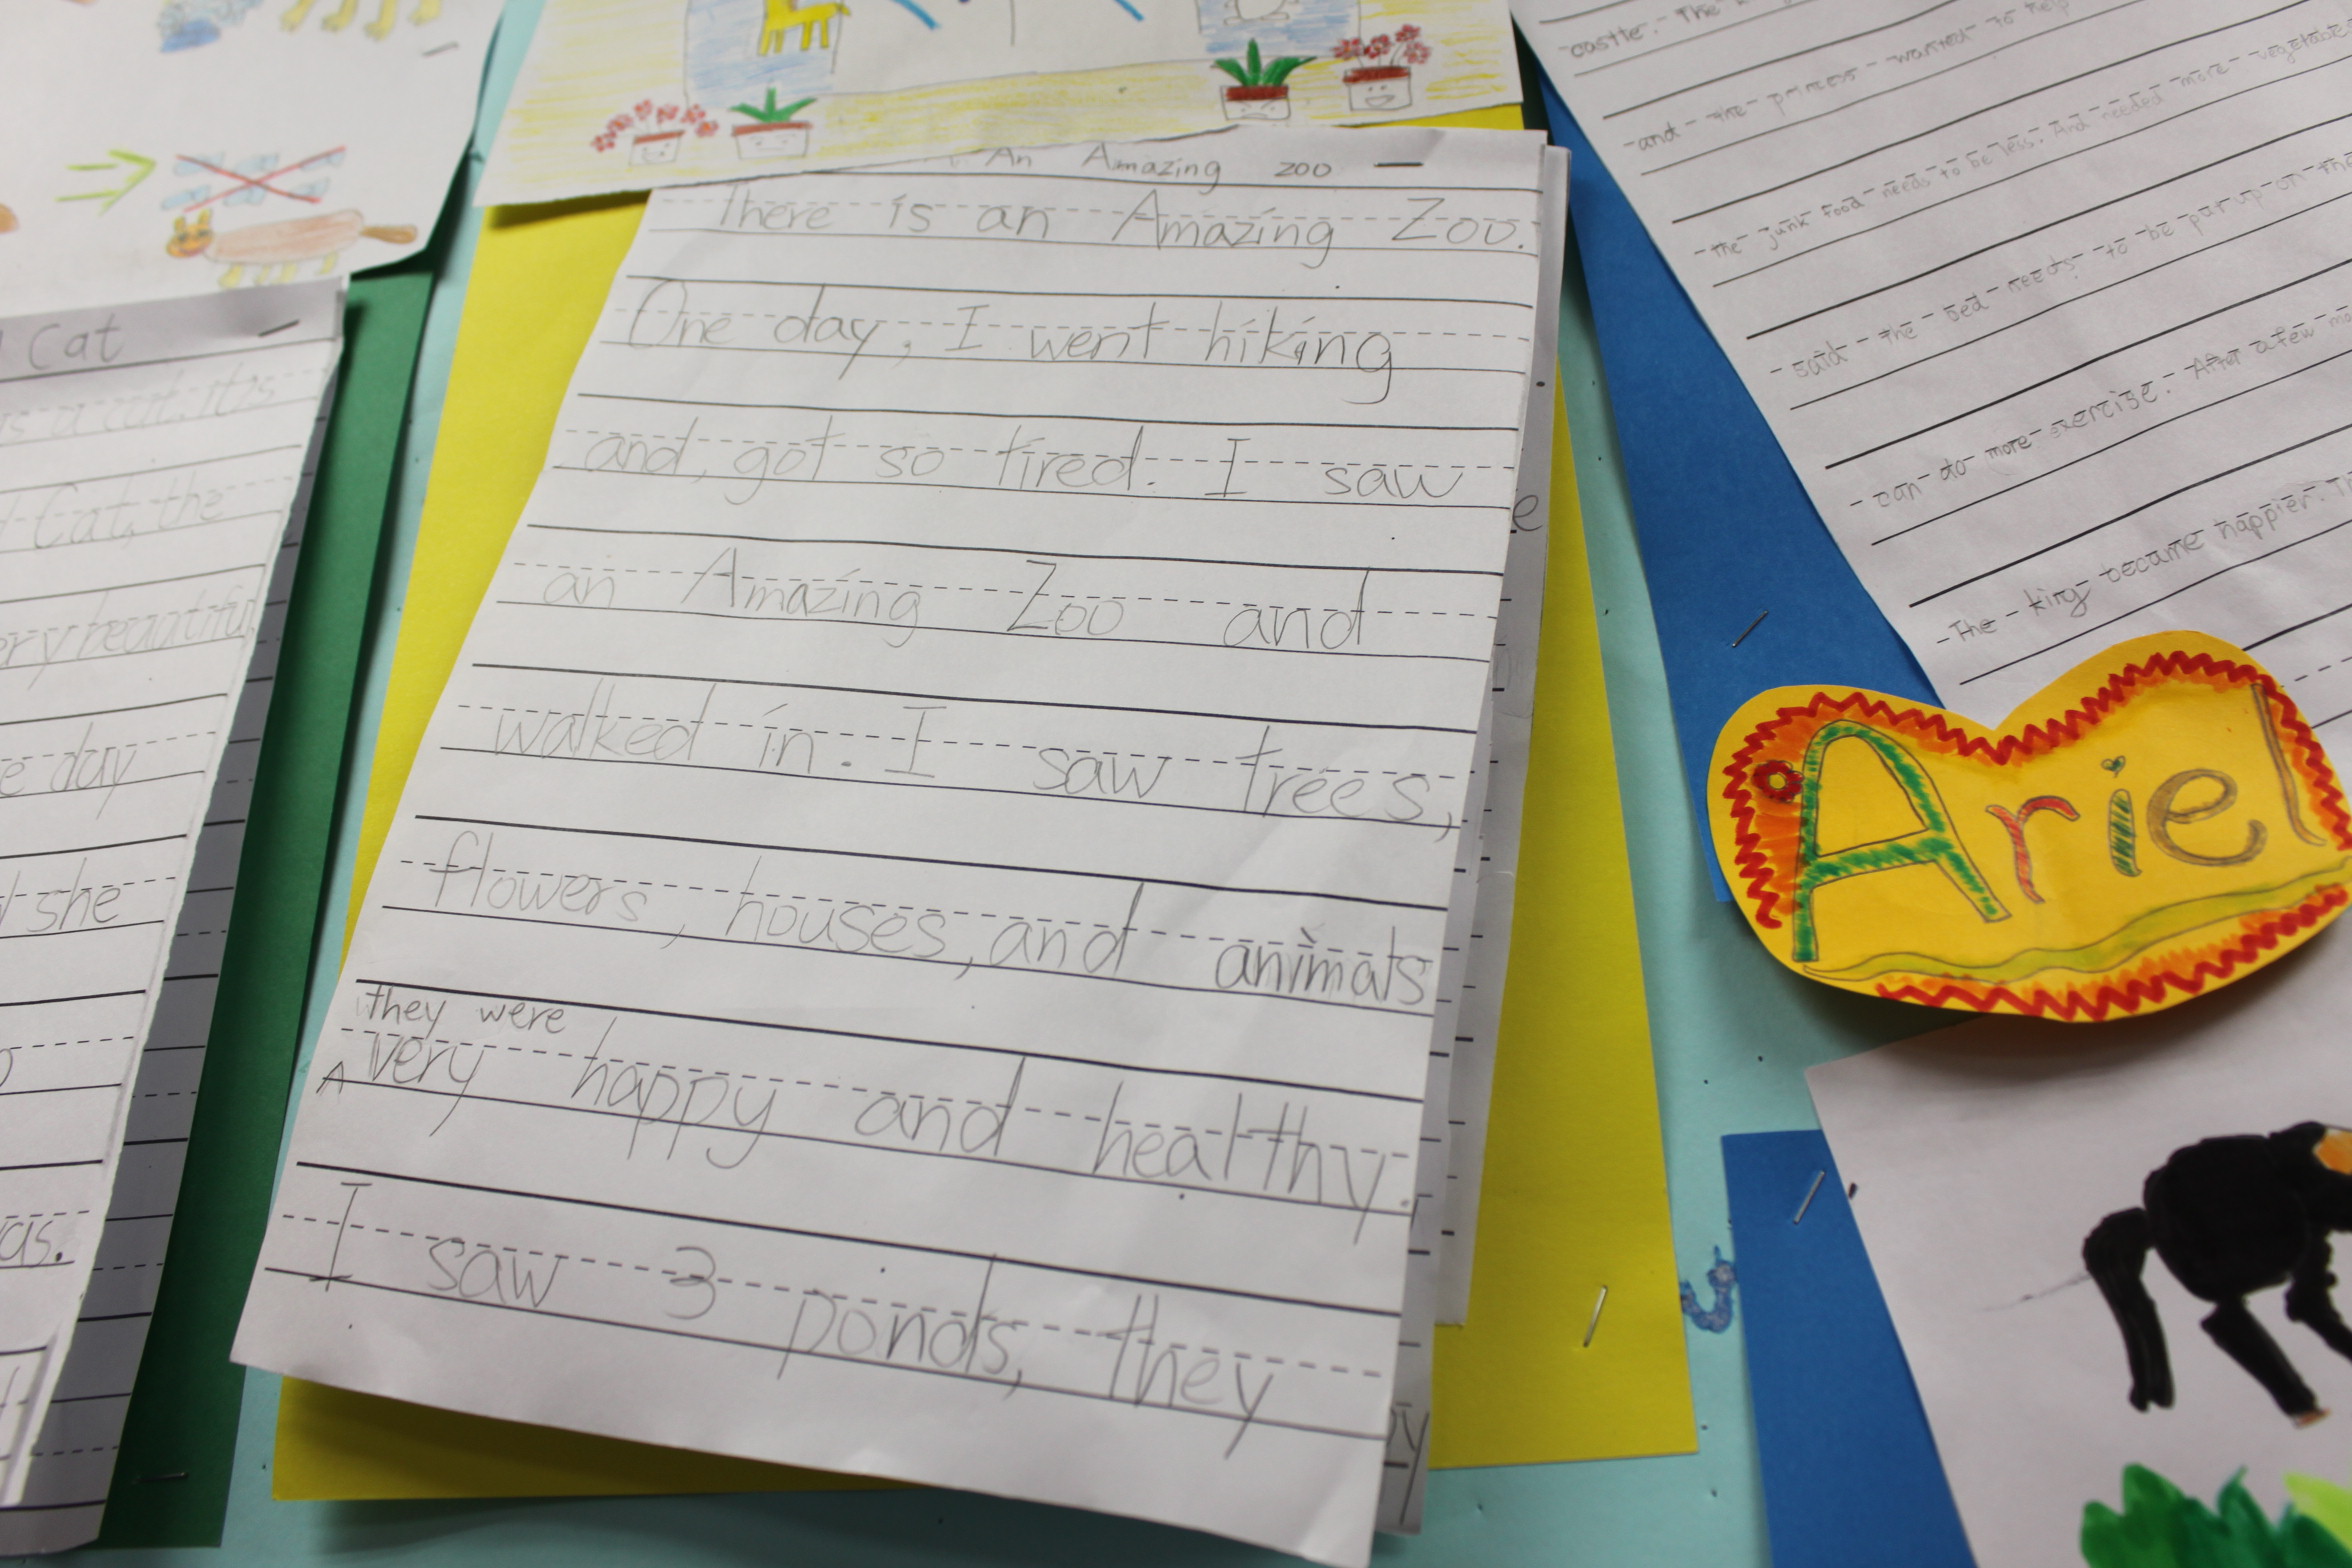 Cat
is a cat. It is
Cat, the
very beautiful
day
she
as.
An Amazing zoo
There is an Amazing Zoo.
One day, I went hiking
and got so tired. I saw
an Amazing Zoo and
walked in. I saw trees,
flowers, houses, and animals
they were
^ very happy and healthy.
I saw 3 ponds, they
castle. The
and the princess wanted to help
the junk food needs to be less. And needed more vegetable
said the bed needs to be put up on the
can do more exercise. After a few
The king became happier.
Ariel